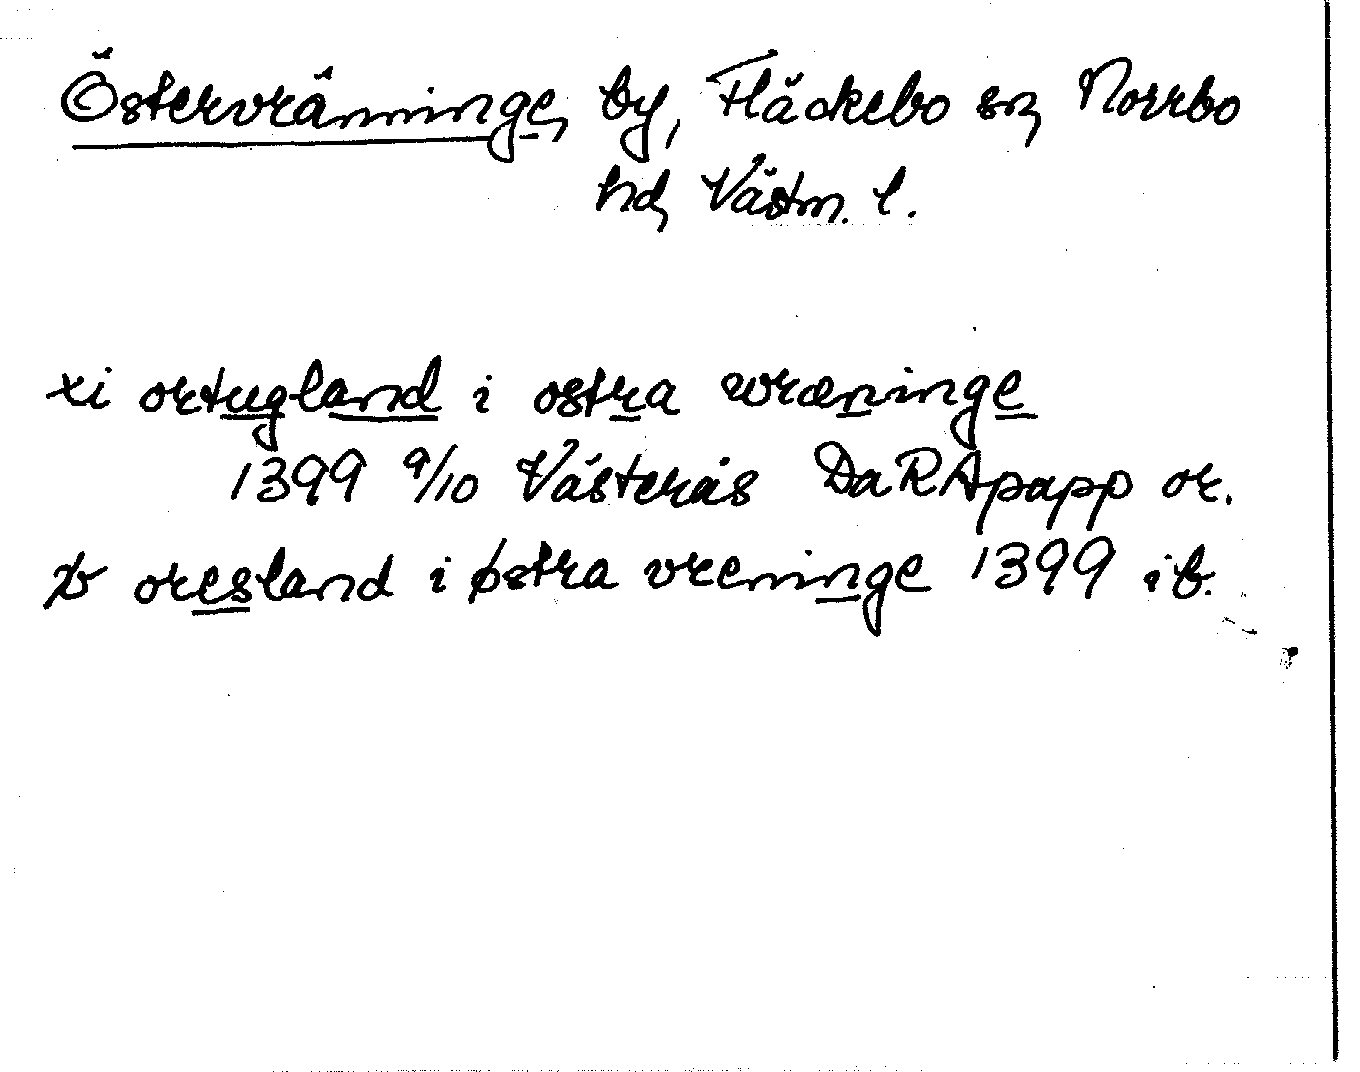 Östervränninge, by, Fläckebo sn, Norrbo
hd, Västm. l.
xi ortugland i ostra wræninge
1399 9/10 Västerås DaRApapp or.
oresland i østra vreninge 1399 ib.